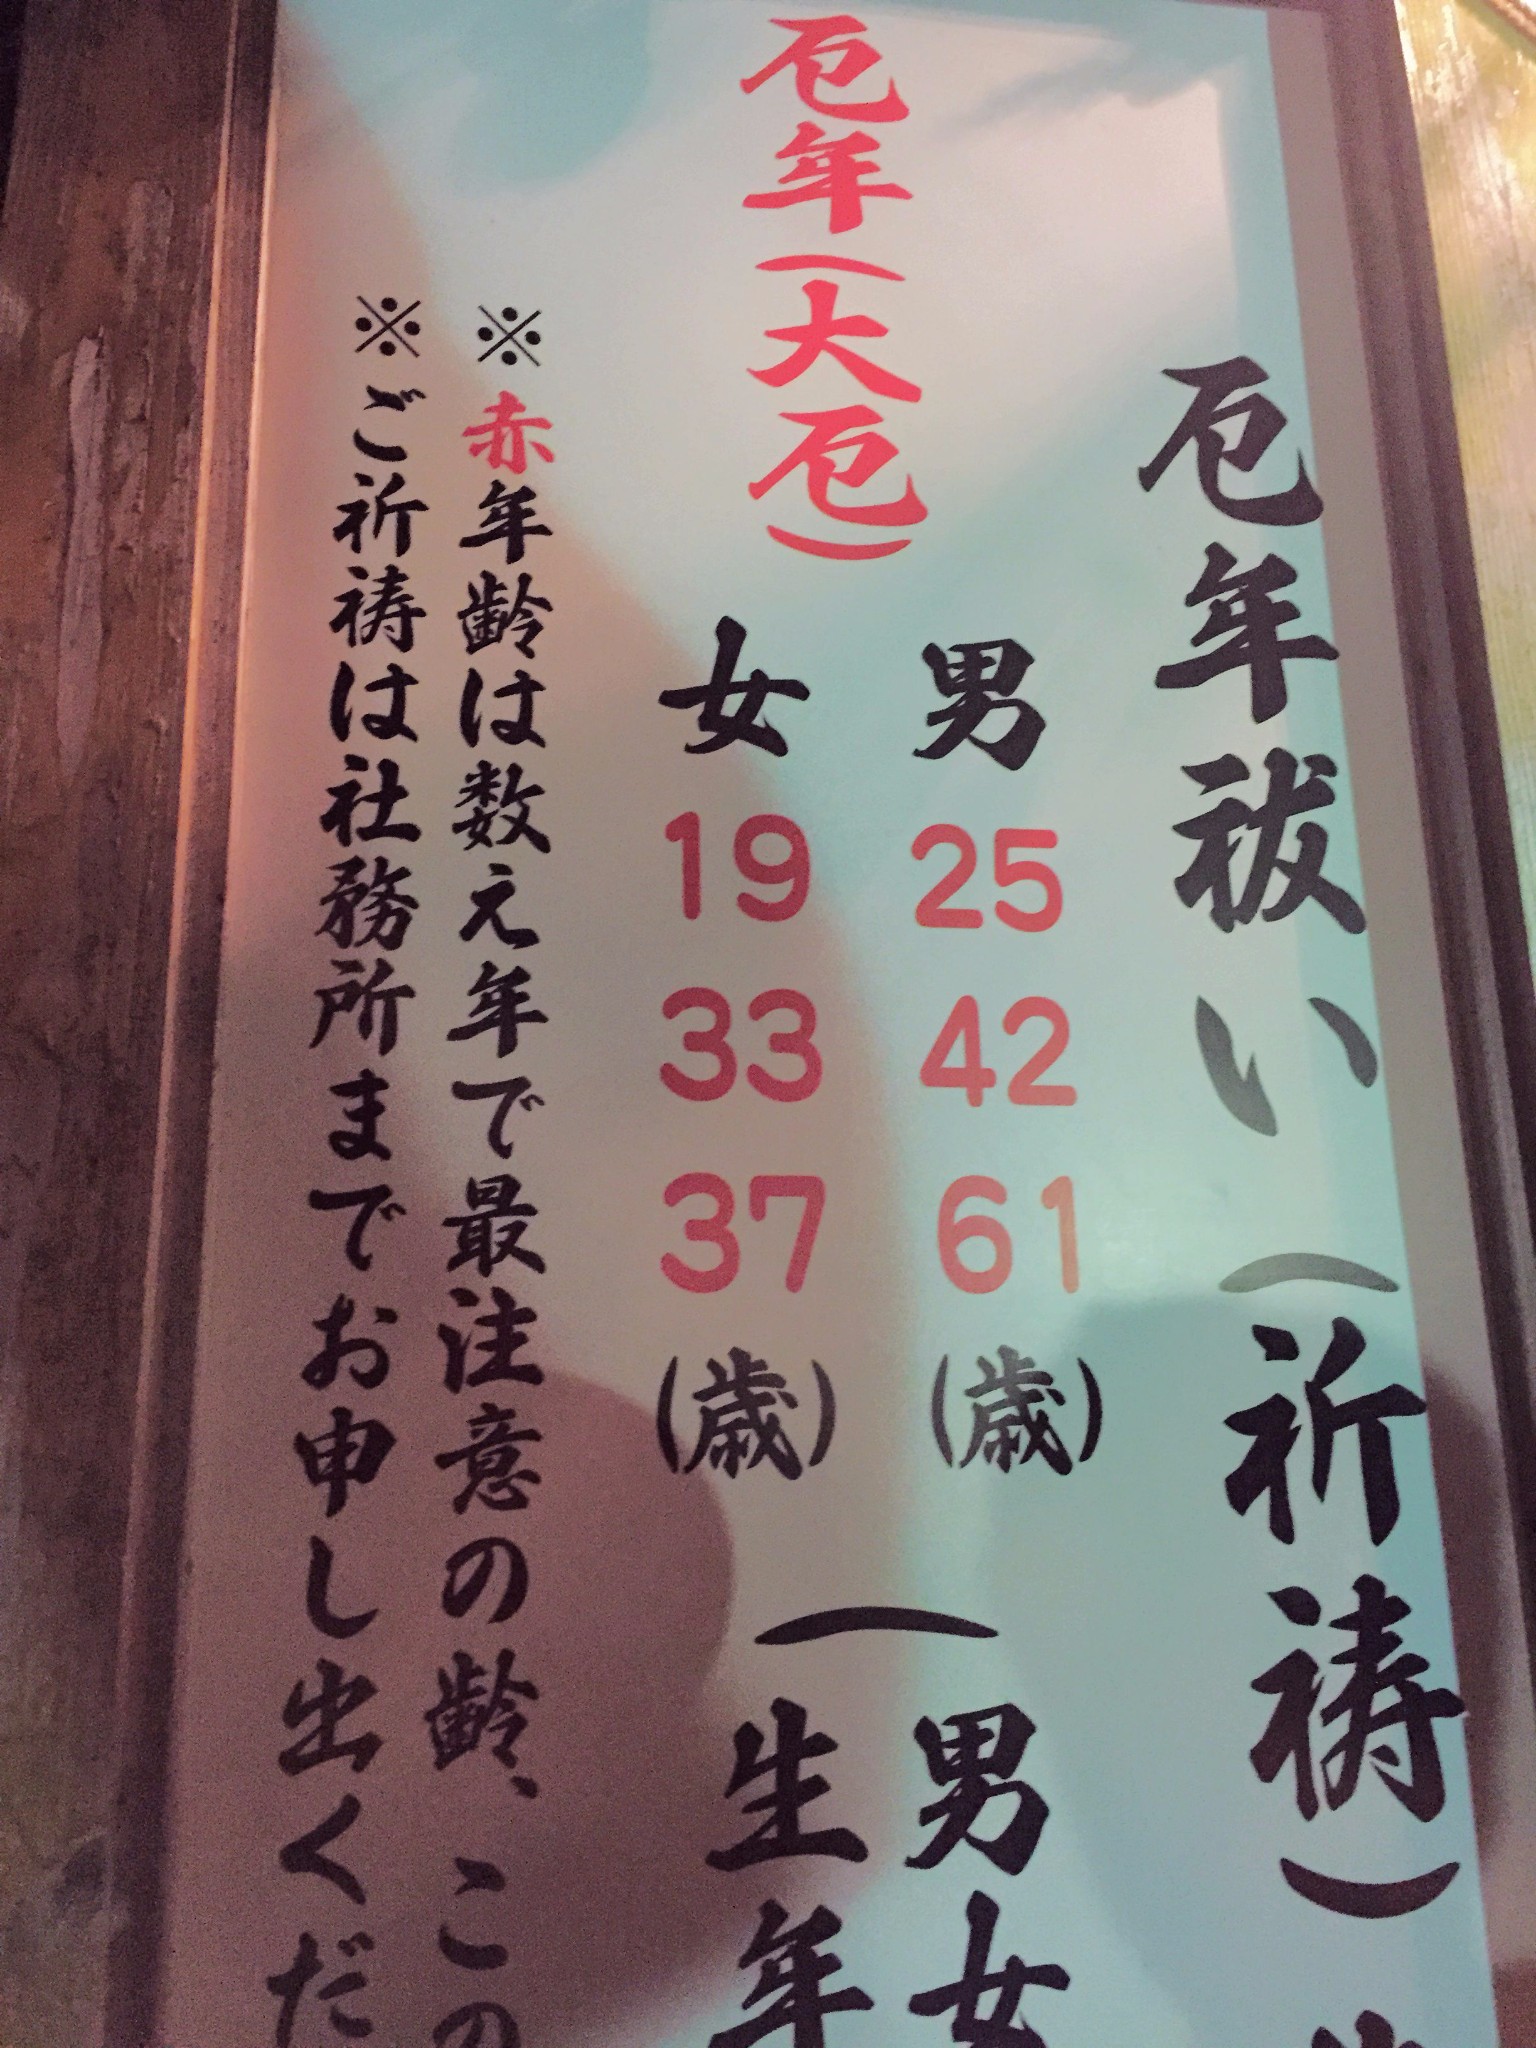 厄年祓い(祈祷)
厄年(大厄)
男 25 42 61 (歳)
女 19 33 37 (歳)
(男女
生年
※赤年齢は数え年で最注意の齢、この
※ご祈祷は社務所までお申し出くだ